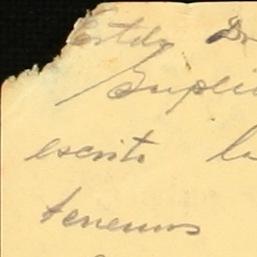 Estdo Dr
Suplic
escrito la
tenemos